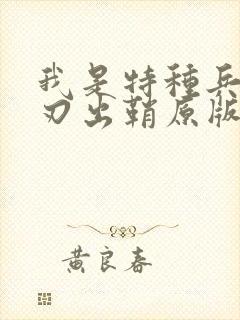 我是特種兵
刃出鞘原版
黄良春